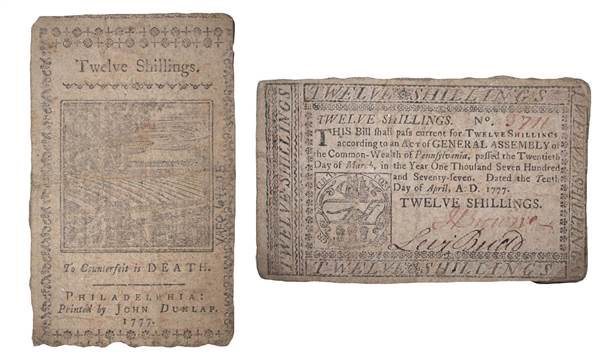 Twelve Shillings.
To Counterfeit is DEATH.
PHILADELPHIA:
Printed by JOHN DUNLAP.
1777.
TWELVE SHILLINGS
TWELVE SHILLINGS. No. 5711
THIS Bill shall pass current for TWELVE SHILLINGS
according to an ACT of GENERAL ASSEMBLY of
the Common-Wealth of Pennsylvania, passed the Twentieth
Day of March, in the Year One Thousand Seven Hundred
and Seventy-seven. Dated the Tenth
Day of April, A.D. 1777.
TWELVE SHILLINGS.
Levy Budd
TWELVE SHILLINGS
TWELVE SHILLINGS
TWELVE SHILLINGS